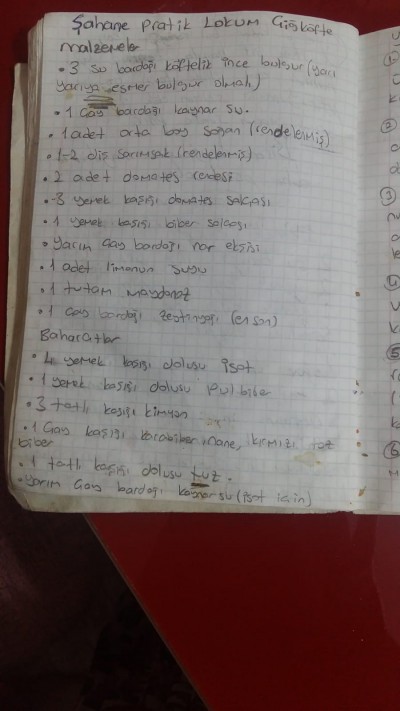 Şahane Pratik Lokum Çiğköfte
malzemeler
• 3 su bardağı köftelik ince bulgur (yarı
yarıya esmer bulgur olmalı)
• 1 Çay bardağı kaynar su.
• 1 adet orta boy soğan (rendelenmiş)
• 1-2 diş sarımsak (rendelenmiş)
• 2 adet domates rendesi
• 3 yemek kaşığı domates salçası
• 1 yemek kaşığı biber salçası
• Yarım Çay bardağı nar ekşisi
• 1 adet limonun suyu
• 1 tutam maydanoz
• 1 Çay bardağı zeytinyağı (en son)
Baharatlar
• 4 yemek kaşığı dolusu isot
• 1 yemek kaşığı dolusu Pul biber
• 3 tatlı kaşığı kimyon
• 1 Çay kaşığı karabiber, nane, kırmızı toz
biber
• 1 tatlı kaşığı dolusu tuz.
• yarım Çay bardağı kaynar su (isot için)
1
2
3
4
5
6